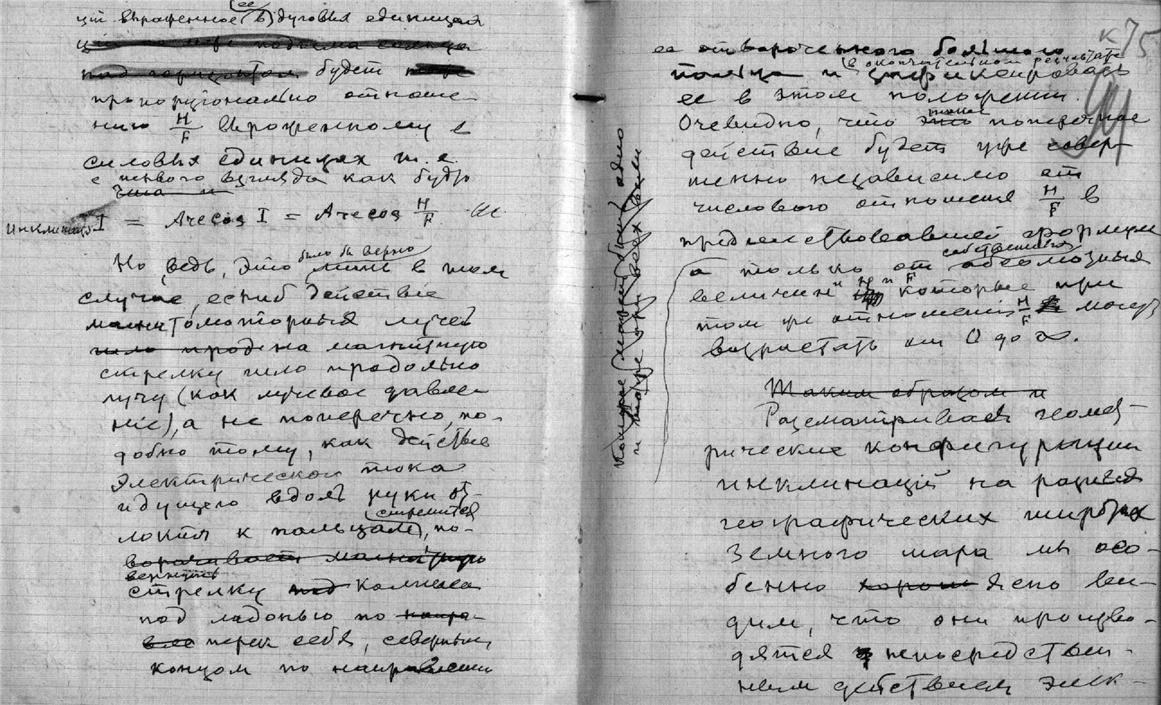 выраженное (в ее) дуговых единицах
будет
пропорционально отноше-
нию H/F выраженному в
силовых единицах т.е.
с первого взгляда как будто
инклинац. I = Arc cos I = Arc cos H/F
Но ведь, это было бы верно лишь в том
случае, еслиб действие
магнитомоторных лучей
на магнитную
стрелку шло продольно
лучу (как лучевое давле-
ние), а не поперечно, по-
добно тому, как действие
электрическаго тока
идущего вдоль руки от
локтя к пальцам, стремится по-
вернуть
стрелку компаса
под ладонью по
перек себя, северным
концом по направлению
к 75
94
ее отвороченного большого
пальца и в окончательном результате фиксировать
ее в этом положении.
Очевидно, что такое поперечное
действие будет уже совер-
шенно независимо от
числового отношения H/F в
предшествовавшей формуле
а только от собственных абсолютных
величин H и F которые при
том же отношении H/F могут
возрастать от 0 до ∞.
Таким образом и
Рассматривая геомет-
рические конфигурации
инклинаций на разных
географических широтах
земного шара мы осо-
бенно ясно ви-
дим, что они произво-
дятся непосредствен-
ным действием элек-